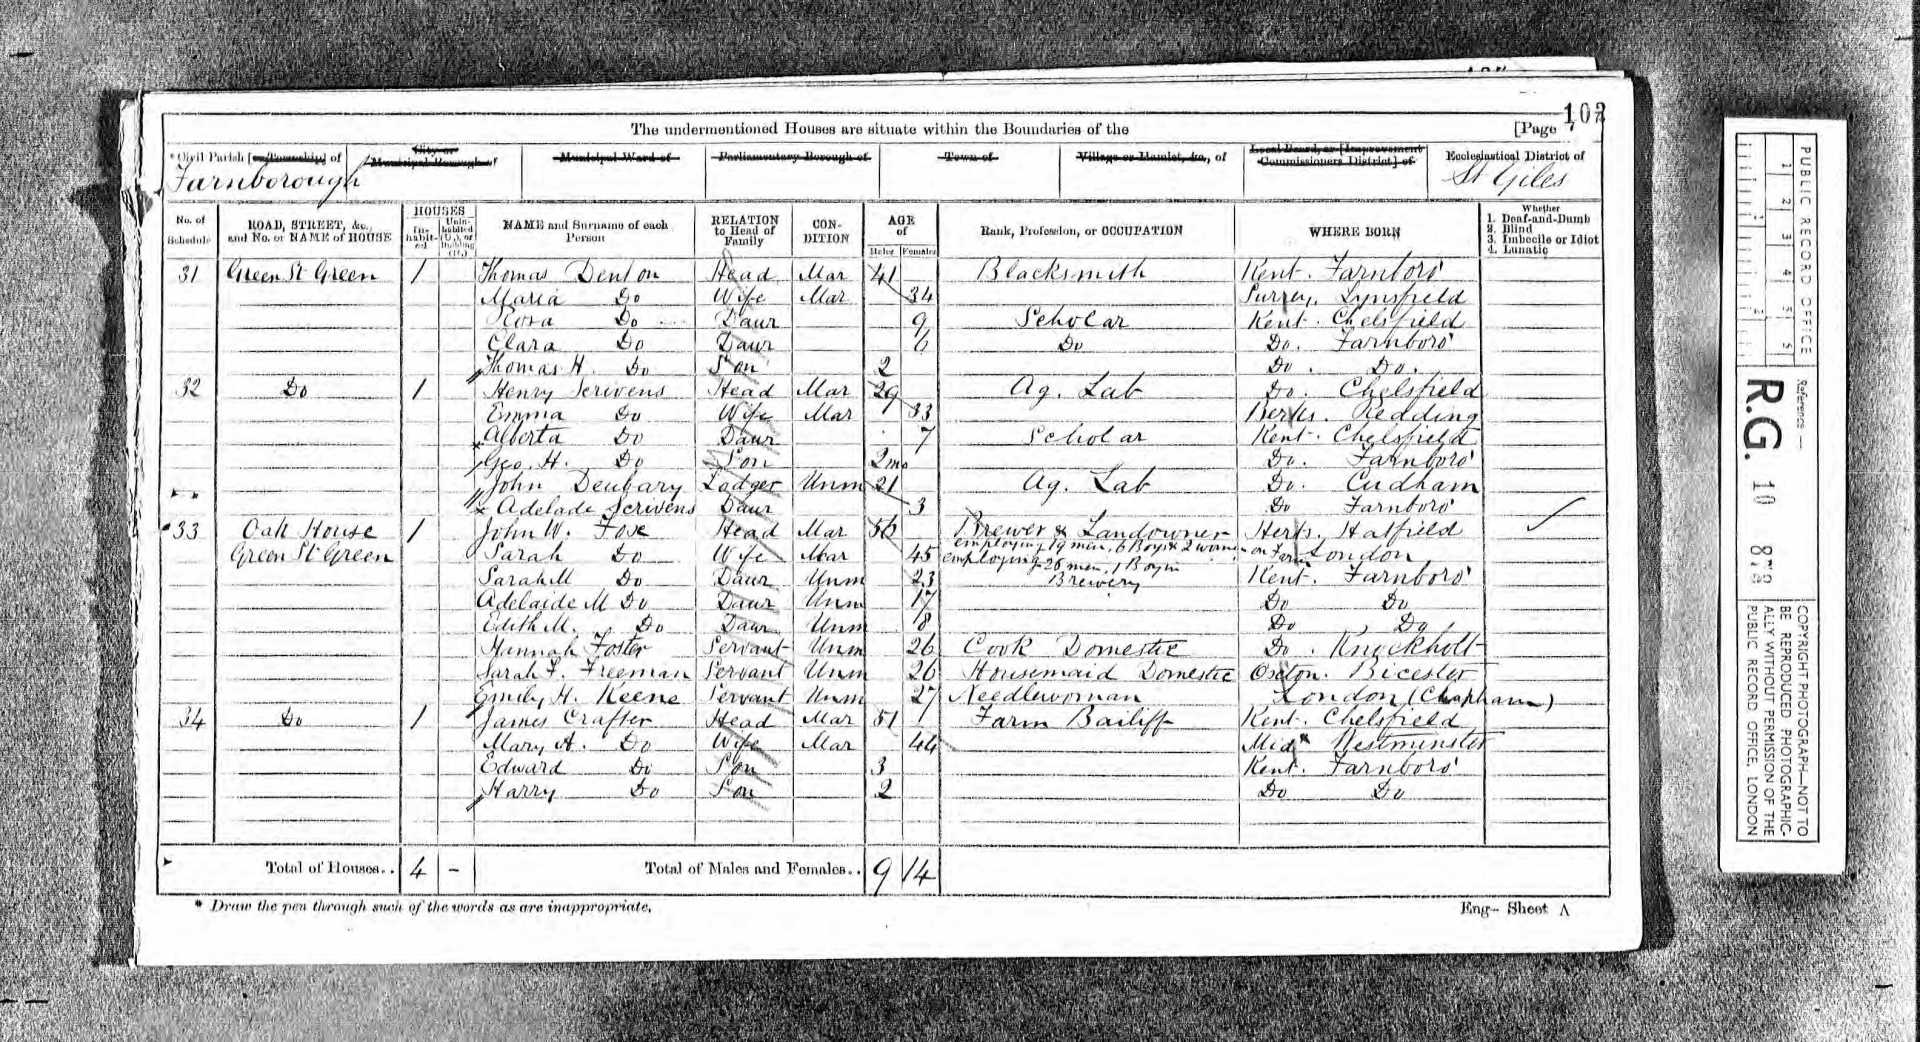 103
The undermentioned Houses are situate within the Boundaries of the [Page 7
Civil Parish [or Township] of City or Municipal Borough of Municipal Ward of Parliamentary Borough of Town of Village or Hamlet, &c., of Local Board, or [Improvement Commissioners District] of Ecclesiastical District of
Farnborough St Giles
No. of Schedule ROAD, STREET, &c., and No. or NAME of HOUSE HOUSES Inhabited Uninhabited (U.), or Building (B.) NAME and Surname of each Person RELATION to Head of Family CONDITION AGE of Males Females Rank, Profession, or OCCUPATION WHERE BORN Whether 1. Deaf-and-Dumb 2. Blind 3. Imbecile or Idiot 4. Lunatic
31 Green St Green 1 Thomas Denton Head Mar 41 Blacksmith Kent. Farnboro'
Maria Do Wife Mar 34 Surrey. Lynsfield
Rosa Do Daur 9 Scholar Kent. Chelsfield
Clara Do Daur 6 Do Do. Farnboro'
Thomas H. Do Son 2 Do. Do.
32 Do 1 Henry Scrivens Head Mar 29 Ag. Lab Do. Chelsfield
Emma Do Wife Mar 33 Berks. Redding
Alberta Do Daur 7 Scholar Kent. Chelsfield
Geo. H. Do Son 2mo Do. Farnboro'
John Denbary Lodger Unm 21 Ag. Lab Do. Cudham
Adelade Scrivens Daur 3 Do Farnboro'
33 Oak House 1 John W. Fox Head Mar 56 Brewer & Landowner Herts. Hatfield
employing 19 men, 6 Boys & 2 women on Farm
Green St Green Sarah Do Wife Mar 45 employing 26 men, 1 Boy in London
Sarah M Do Daur Unm 23 Brewery Kent. Farnboro'
Adelaide M Do Daur Unm 17 Do Do
Edith M. Do Daur Unm 8 Do Do
Hannah Foster Servant Unm 26 Cook Domestic Do. Knockholt
Sarah F. Freeman Servant Unm 26 Housemaid Domestic Oxon. Bicester
Emily H. Keene Servant Unm 27 Needlewoman London (Clapham)
34 Do 1 James Crafter Head Mar 51 Farm Bailiff Kent. Chelsfield
Mary A. Do Wife Mar 44 Midx Westminster
Edward Do Son 3 Kent. Farnboro'
Harry Do Son 2 Do Do
Total of Houses.. 4 - Total of Males and Females.. 9 14
* Draw the pen through such of the words as are inappropriate. Eng- Sheet A
PUBLIC RECORD OFFICE
1 2 3 4 5
Reference:-
R.G. 10 873
COPYRIGHT PHOTOGRAPH—NOT TO
BE REPRODUCED PHOTOGRAPHIC-
ALLY WITHOUT PERMISSION OF THE
PUBLIC RECORD OFFICE, LONDON